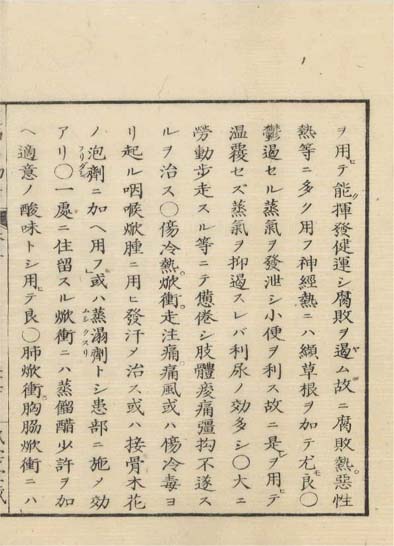 ヲ用テ能ク揮發健運シ腐敗ヲ遏ム故ニ腐敗熱。惡性
熱等ニ多ク用フ神經熱ニハ纈草根ヲ加テ尤良〇
鬱遏セル蒸氣ヲ發泄シ小便ヲ利ス故ニ是ヲ用テ
温覆セズ蒸氣ヲ抑遏スレバ利尿ノ効多シ〇大ニ
勞動步走スル等ニテ憊倦シ肢體痠痛彊拘不遂ス
ルヲ治ス〇傷冷熱。焮衝。走注痛。痛風或ハ傷冷毒ヨ
リ起ル咽喉焮腫ニ用ヒ發汗メ治ス或ハ接骨木花
ノ泡劑ニ加ヘ用フ或ハ蒸溻劑トシ患部ニ施メ効
アリ〇一處ニ住留スル焮衝ニハ蒸餾醋少許ヲ加
ヘ適意ノ酸味トシ用テ良〇肺焮衝。胸膓焮衝ニハ